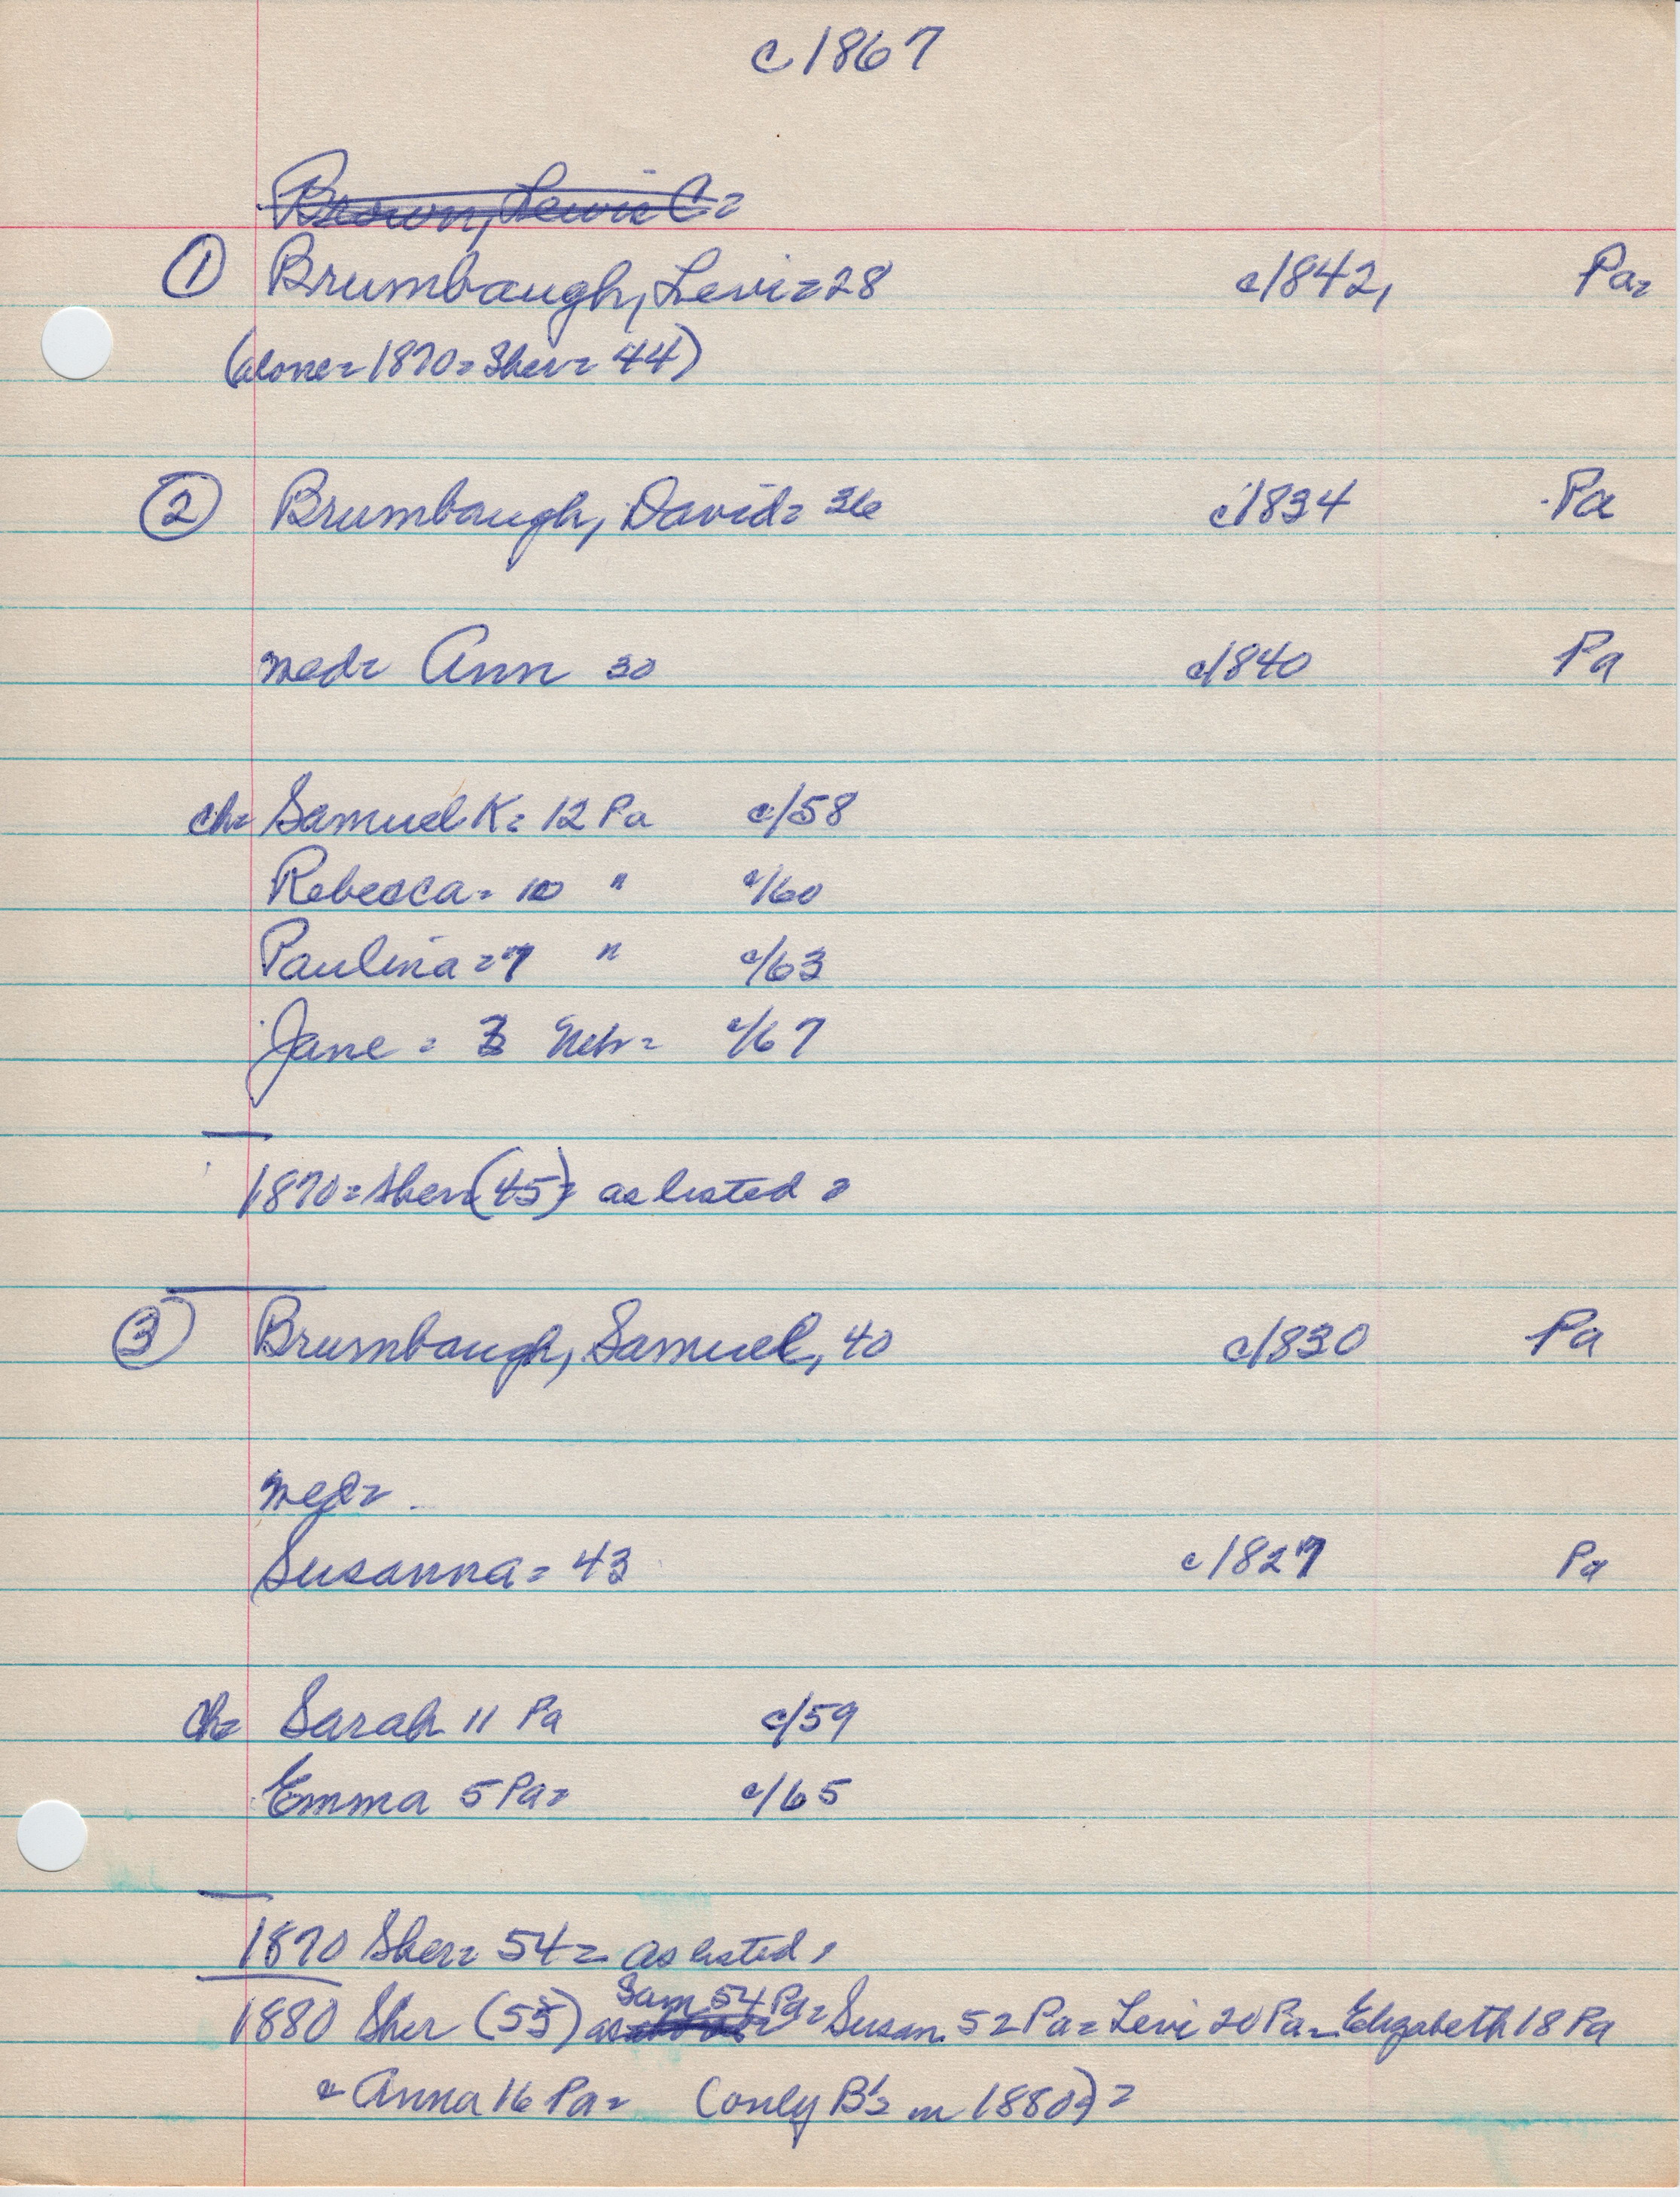 c1867
Brown, Lewis C=
① Brumbaugh, Levi=28 c1842, Pa=
(alone=1870=Sher=44)
② Brumbaugh, David= 36 c1834 Pa
med= Ann 30 c1840 Pa
ch= Samuel K= 12 Pa c/58
Rebecca= 10 " c/60
Paulina=7 " c/63
Jane = 3 Neb= c/67
1870=Sher(45)= as listed=
③ Brumbaugh, Samuel, 40 c1830 Pa
med=
Susanna= 43 c1827 Pa
ch= Sarah 11 Pa c/59
Emma 5 Pa= c/65
1870 Sher= 54= as listed,
Sam 54 Pa=
1880 Sher (55) as Susan 52 Pa= Levi 20 Pa= Elizabeth 18 Pa
& Anna 16 Pa= (only B's in 1880)=